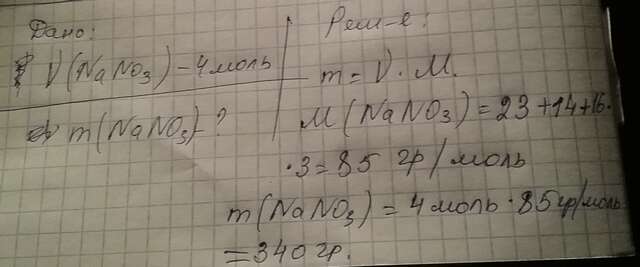 Дано:
ν(NaNO₃) – 4 моль
m(NaNO₃) – ?
Реш-е:
m = ν · M.
M(NaNO₃) = 23 + 14 + 16 ·
· 3 = 85 гр/моль
m(NaNO₃) = 4 моль · 85 гр/моль
= 340 гр.